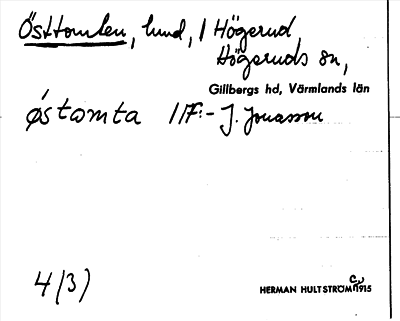 Östtomten, lund, / Högerud,
Högeruds sn,
Gillbergs hd, Värmlands län
østamta / IF:- J. Jonasson
4/3)
HERMAN HULTSTRÖM 1915